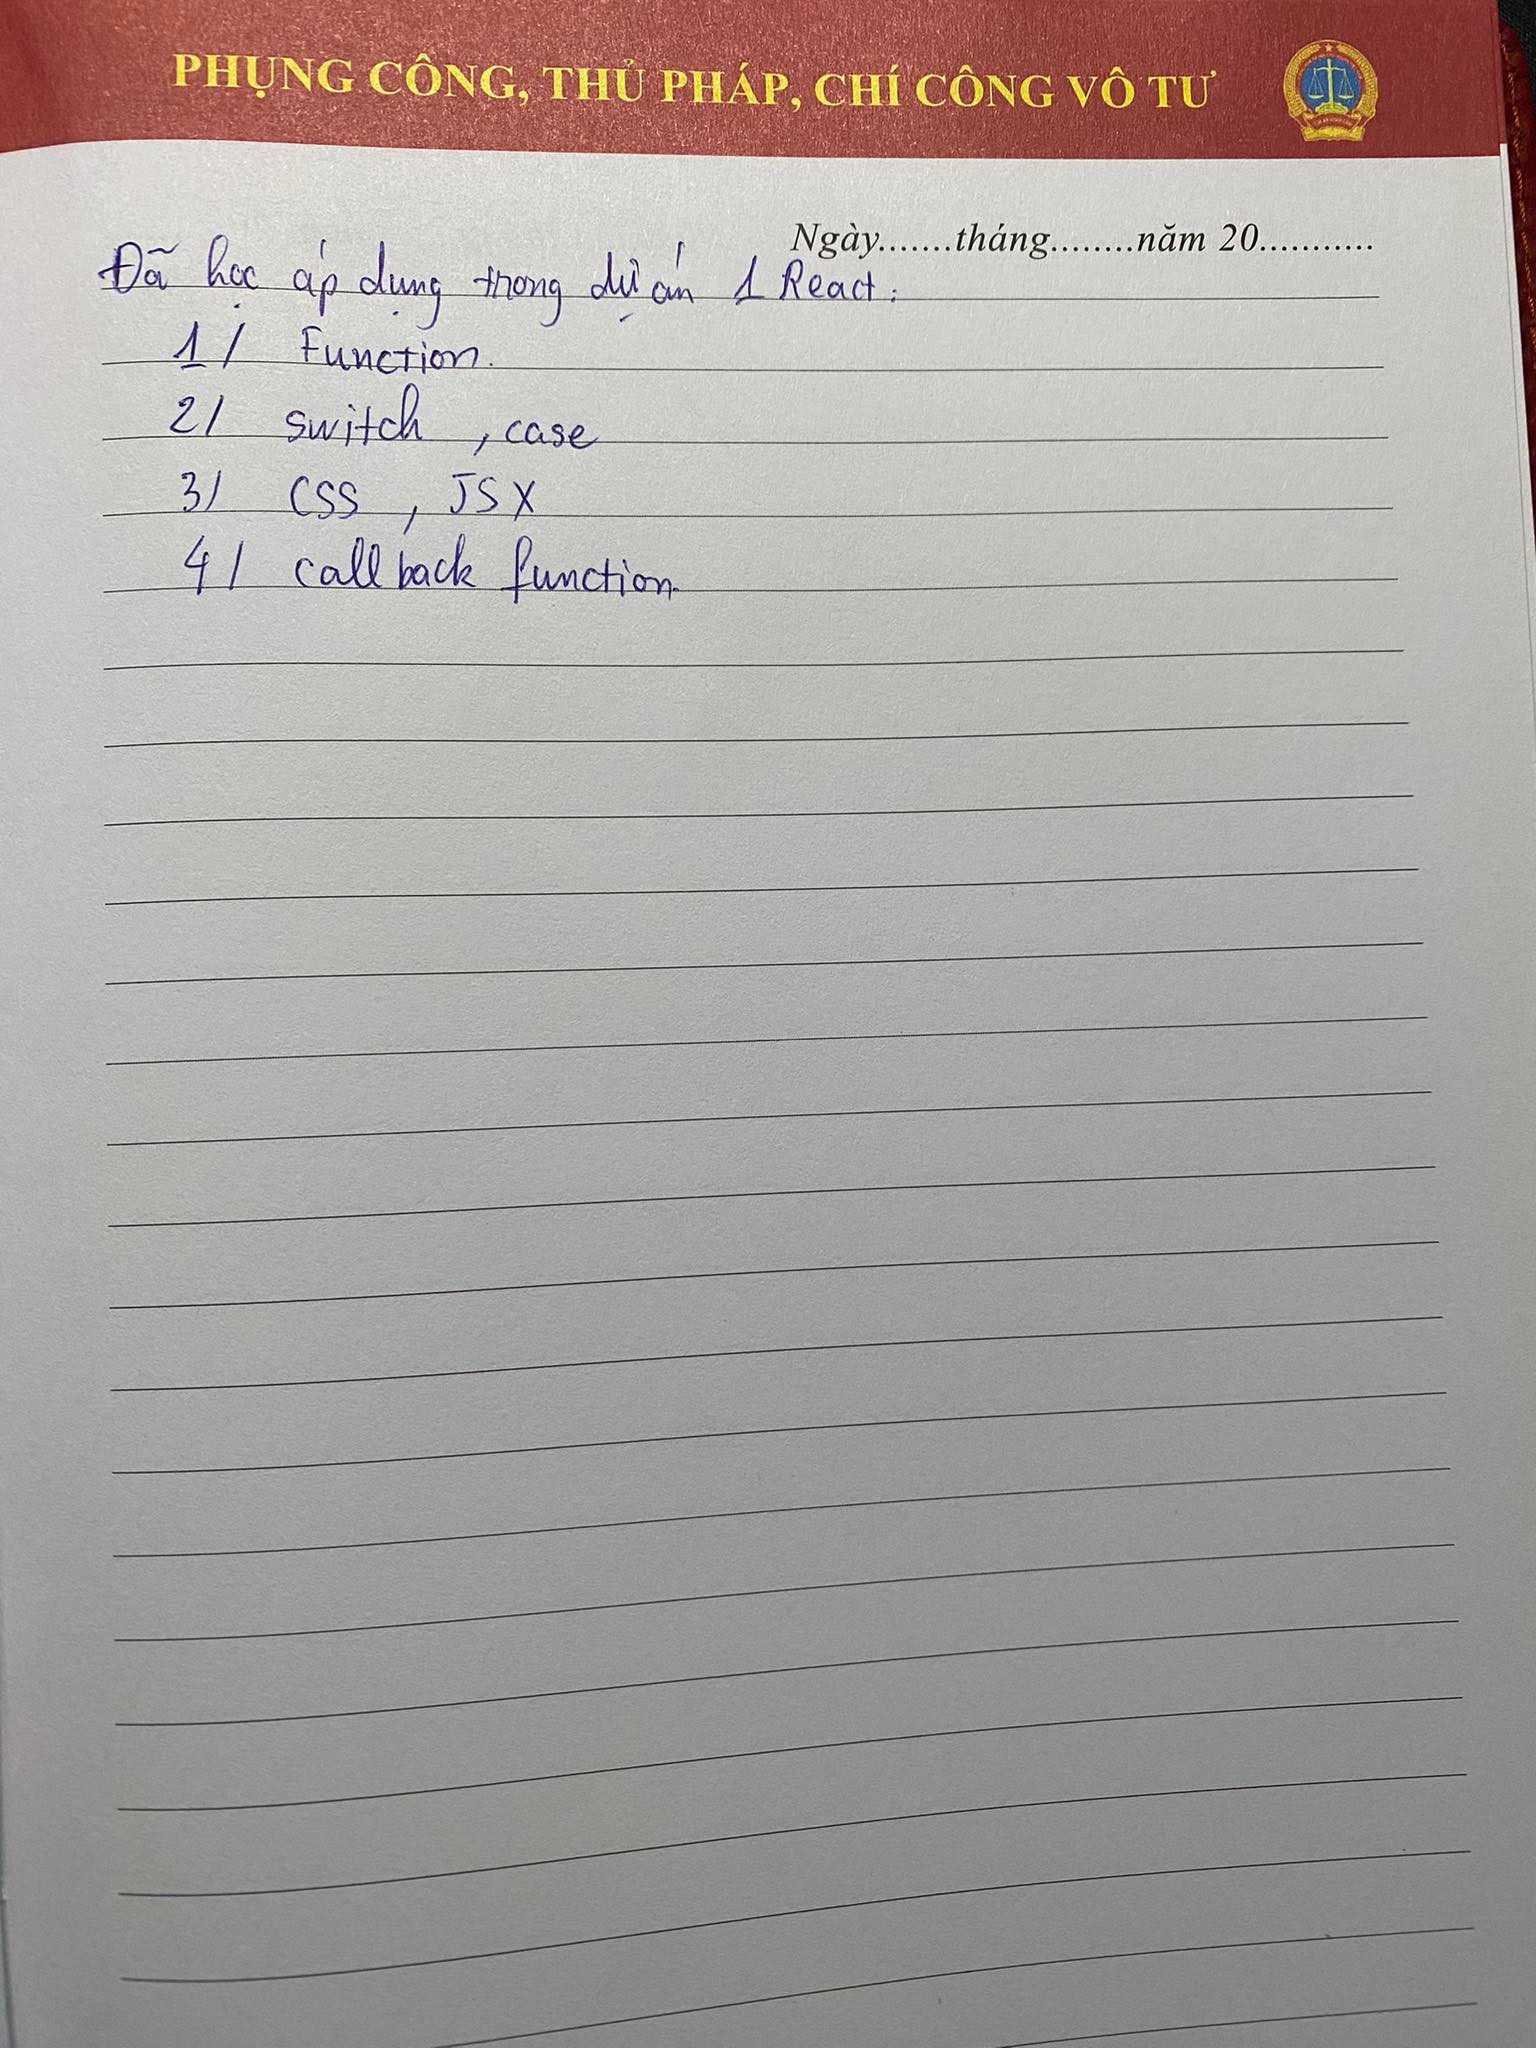 PHỤNG CÔNG, THỦ PHÁP, CHÍ CÔNG VÔ TƯ
Ngày.......tháng........năm 20...........
Đã học áp dụng trong dự án 1 React:
1/ Function.
2/ switch, case
3/ CSS, JSX
4/ callback function.